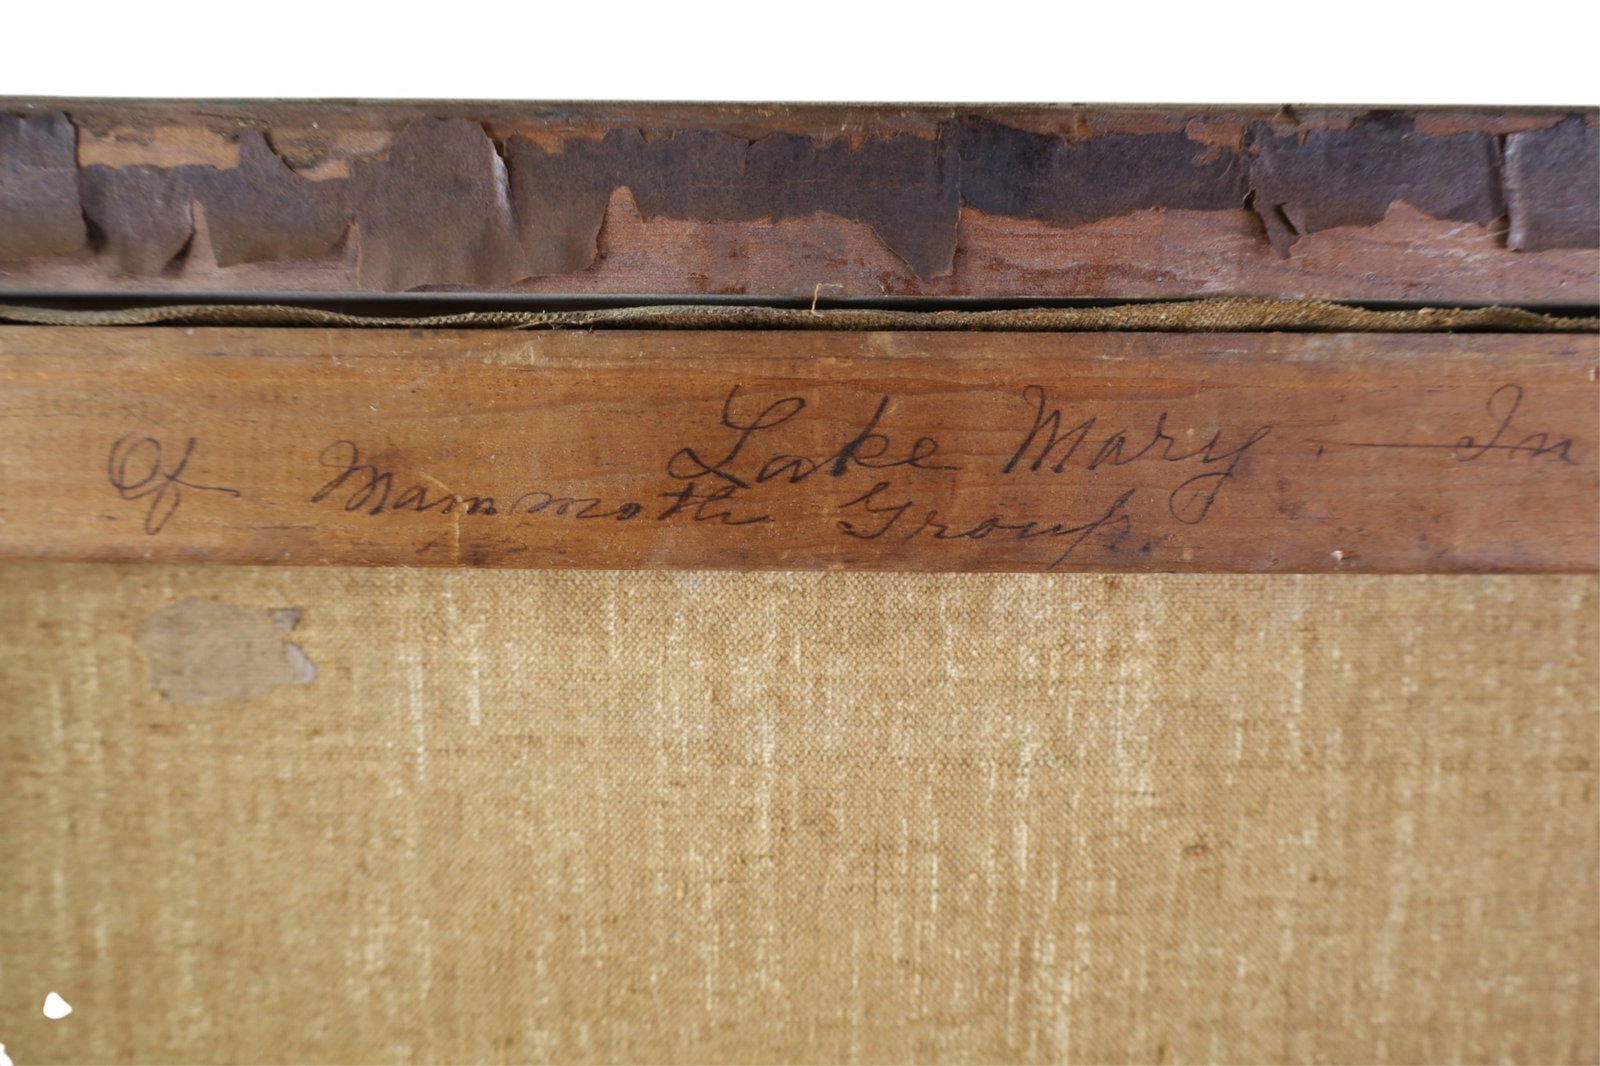 Lake Mary. — In
Of Mammoth Group.